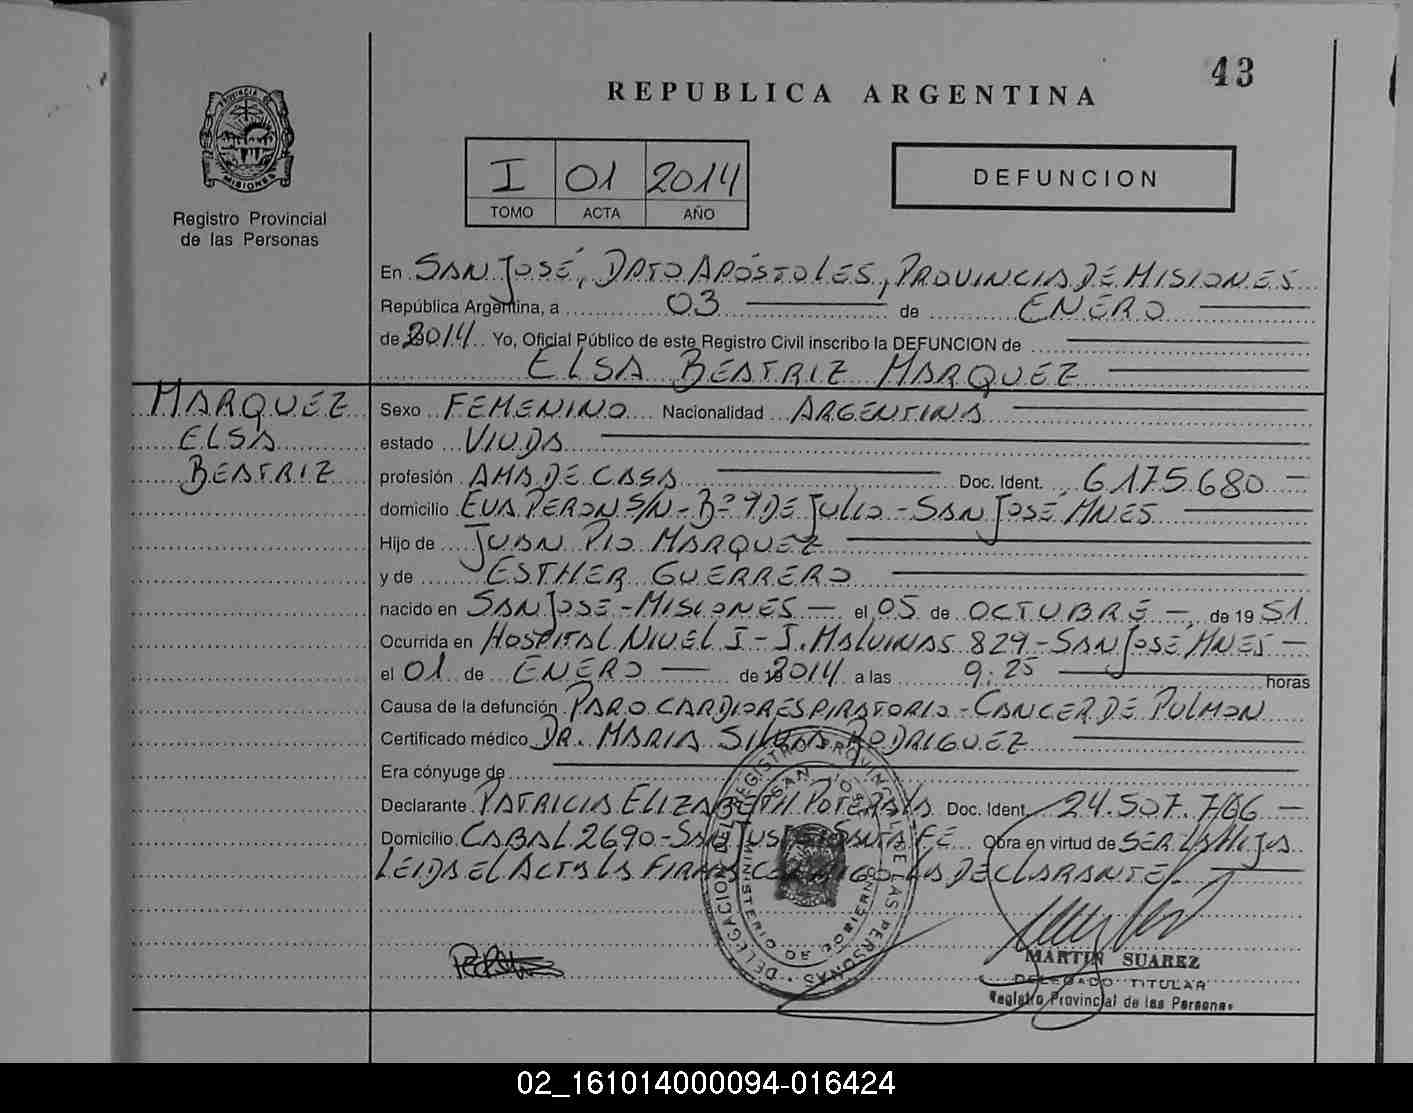 43
REPUBLICA ARGENTINA
PROVINCIA DE
MISIONES
Registro Provincial
de las Personas
I 01 2014
TOMO ACTA AÑO
DEFUNCION
En SAN JOSÉ, DPTO APÓSTOLES, PROVINCIA DE MISIONES
República Argentina, a 03 de ENERO
de 2014 Yo, Oficial Público de este Registro Civil inscribo la DEFUNCION de
ELSA BEATRIZ MARQUEZ
MARQUEZ
ELSA
BEATRIZ
Sexo FEMENINO Nacionalidad ARGENTINA
estado VIUDA
profesión AMA DE CASA Doc. Ident. 6175680
domicilio EVA PERON S/N - Bº 9 DE JULIO - SAN JOSÉ MNES
Hijo de JUAN PIO MARQUEZ
y de ESTHER GUERRERO
nacido en SAN JOSE - MISIONES - el 05 de OCTUBRE -, de 19 51
Ocurrida en HOSPITAL NIVEL I - I. MALVINAS 829 - SAN JOSÉ MNES -
el 01 de ENERO de 2014 a las 9:25 horas
Causa de la defunción PARO CARDIORESPIRATORIO - CANCER DE PULMON
Certificado médico DR. MARIA SILVIA RODRIGUEZ
Era cónyuge de
Declarante PATRICIA ELIZABETH Doc. Ident. 24.507.766 -
Domicilio CABAL 2690 - SAN JUSTO SANTA FE Obra en virtud de SER LA HIJA
LEIDA EL ACTA LA FIRMA CONMIGO LA DECLARANTE
DELEGACION DEL REGISTRO PROVINCIAL DE LAS PERSONAS
SAN JOSE
MINISTERIO DE GOBIERNO
MARTIN SUAREZ
DELEGADO TITULAR
Registro Provincial de las Personas
02_161014000094-016424